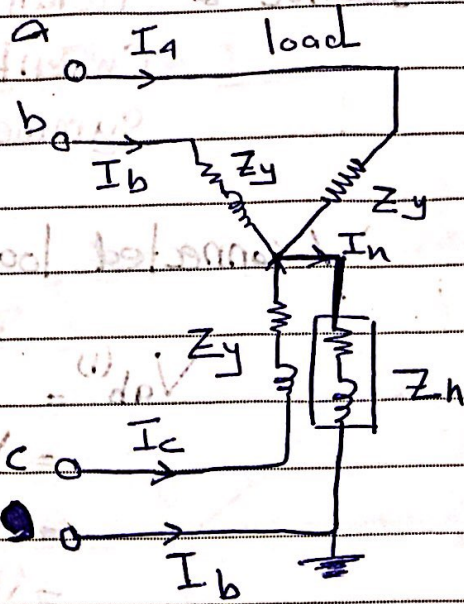 a
Ia
load
b
Ib
Zy
Zy
In
Zy
Zn
c
Ic
Ib